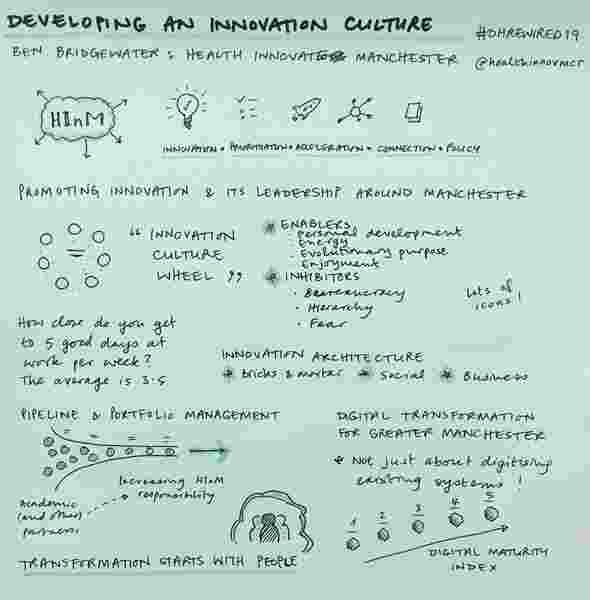 DEVELOPING AN INNOVATION CULTURE
#DHREWIRED19
BEN BRIDGEWATER: HEALTH INNOVAT MANCHESTER
@healthinnovmcr
HInM
INNOVATION • PRIORITISATION • ACCELERATION • CONNECTION • POLICY
PROMOTING INNOVATION & ITS LEADERSHIP AROUND MANCHESTER
"INNOVATION
CULTURE
WHEEL"
* ENABLERS
• personal development
• Energy
• Evolutionary purpose
• Enjoyment
* INHIBITORS
• Beaureaucracy
• Hierarchy
• Fear
Lots of
icons!
How close do you get
to 5 good days at
work per week?
The average is 3.5
INNOVATION ARCHITECTURE
* bricks & mortar * Social * Business
PIPELINE & PORTFOLIO MANAGEMENT
Increasing HInM
responsibility
Academic
(and other)
partners
TRANSFORMATION STARTS WITH PEOPLE
DIGITAL TRANSFORMATION
FOR GREATER MANCHESTER
* Not just about digitising
existing systems!
1 2 3 4 5
DIGITAL MATURITY
INDEX